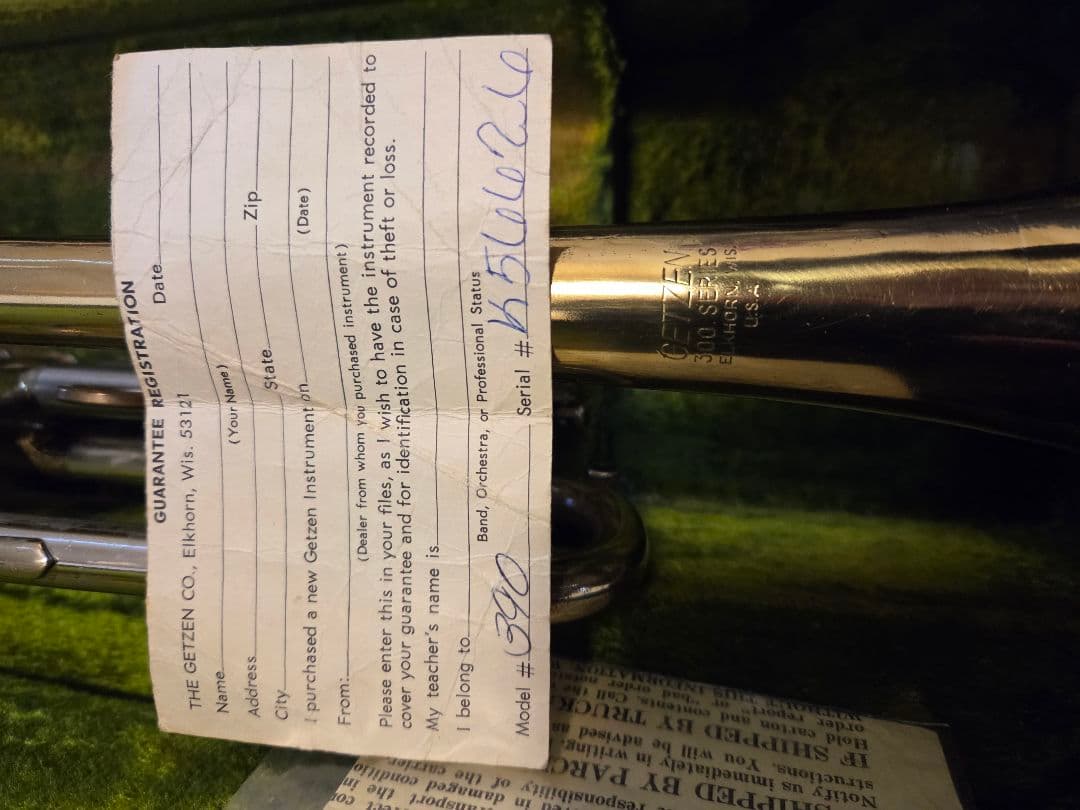 GUARANTEE REGISTRATION
THE GETZEN CO., Elkhorn, Wis. 53121 Date
Name
(Your Name)
Address
City State Zip
I purchased a new Getzen Instrument on
(Date)
From:
(Dealer from whom you purchased instrument)
Please enter this in your files, as I wish to have the instrument recorded to
cover your guarantee and for identification in case of theft or loss.
My teacher's name is
I belong to
Band, Orchestra, or Professional Status
Model # 390 Serial # K56626
GETZEN
300 SERIES
ELKHORN, WIS.
U.S.A.
transport the in
in damaged conditio
responsibility of the carrier.
SHIPPED BY PARC
Notify us immediately in writing. You will be advised as
structions.
IF SHIPPED BY TRUCK
Hold carton and contents. Call the
order report or "bad order"
WITHOUT THIS INFORMATION